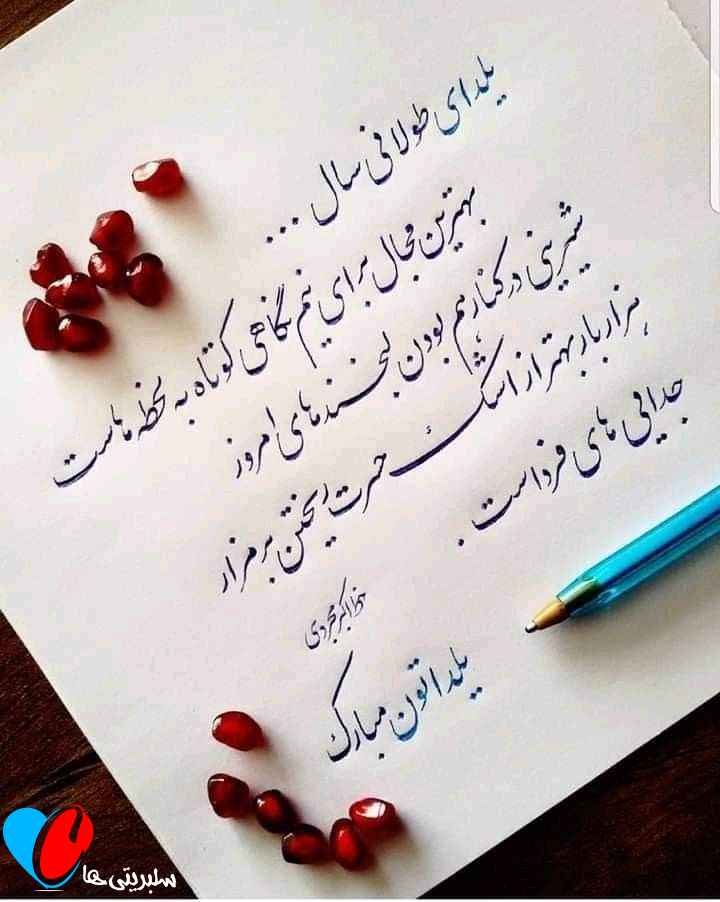 یلدای طولانی سال ...
بهترین مجال برای نیم نگاهی کوتاه به لحظه هاست
شیرینی در کنار هم بودن لبخندهای امروز
هزار بار بهتر از اشک حسرت ریختن بر مزار
جدایی های فرداست .
خط اکبر مجردی
یلداتون مبارک
سلبریتی ها